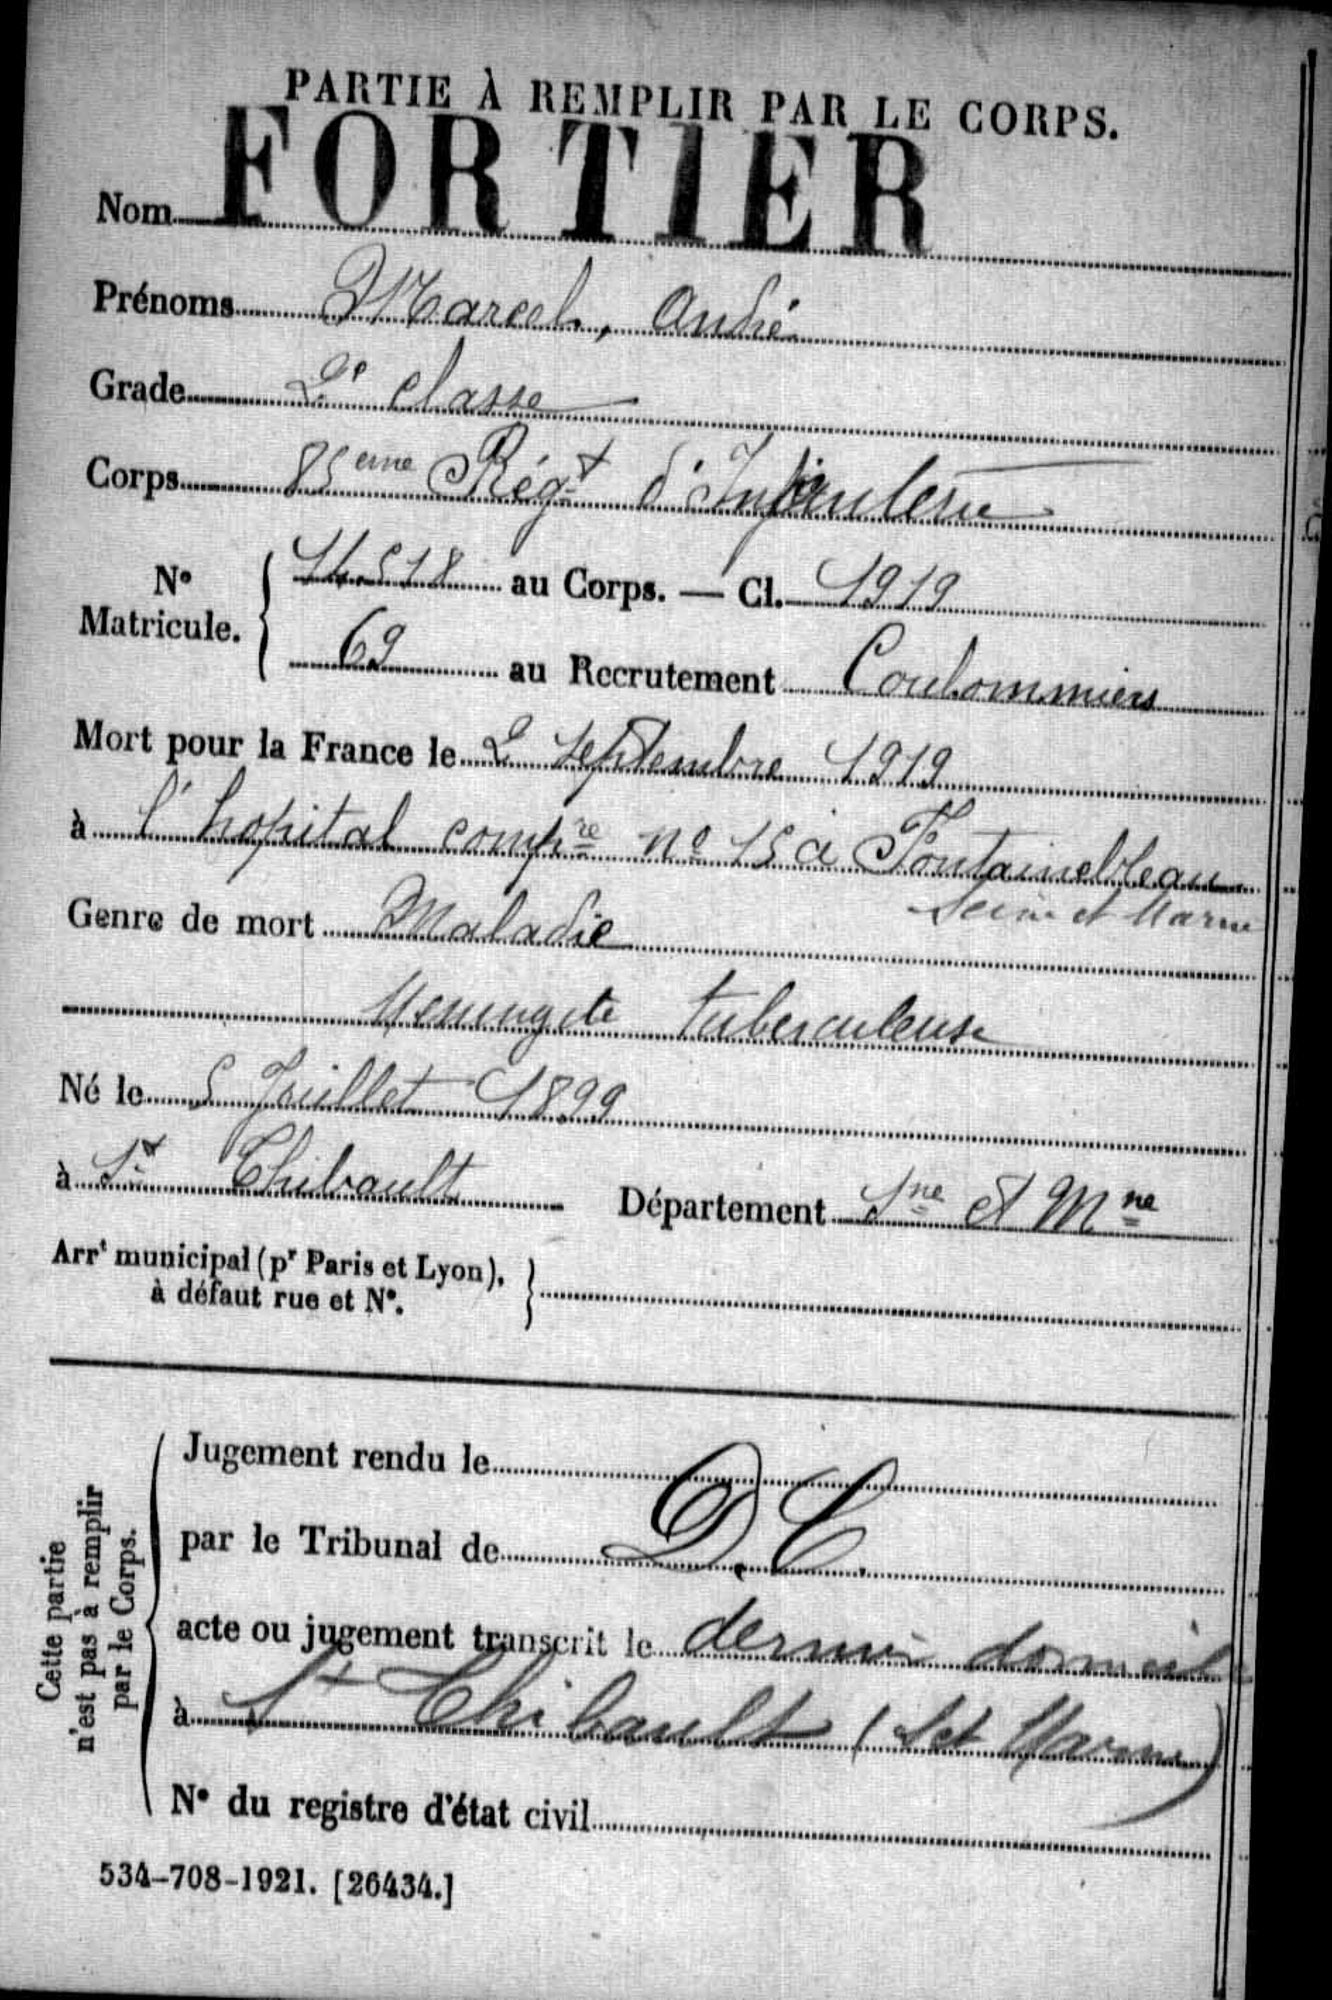 PARTIE À REMPLIR PAR LE CORPS.
Nom FORTIER
Prénoms Marcel, André
Grade 2e classe
Corps 85eme Régt d'Infanterie
No Matricule. { 14.518 au Corps. — Cl. 1919
69 au Recrutement Coulommiers
Mort pour la France le 2 Septembre 1919
à l'hopital compre no 15 à Fontainebleau
Seine et Marne
Genre de mort Maladie
Meningite tuberculeuse
Né le 5 Juillet 1899
à St Thibault Département Sne et Mne
Arrt municipal (pr Paris et Lyon), à défaut rue et No. }
Cette partie n'est pas à remplir par le Corps.
Jugement rendu le
par le Tribunal de D.C.
acte ou jugement transcrit le dernier domicile
à St Thibault (S et Marne)
No du registre d'état civil
534-708-1921. [26434.]